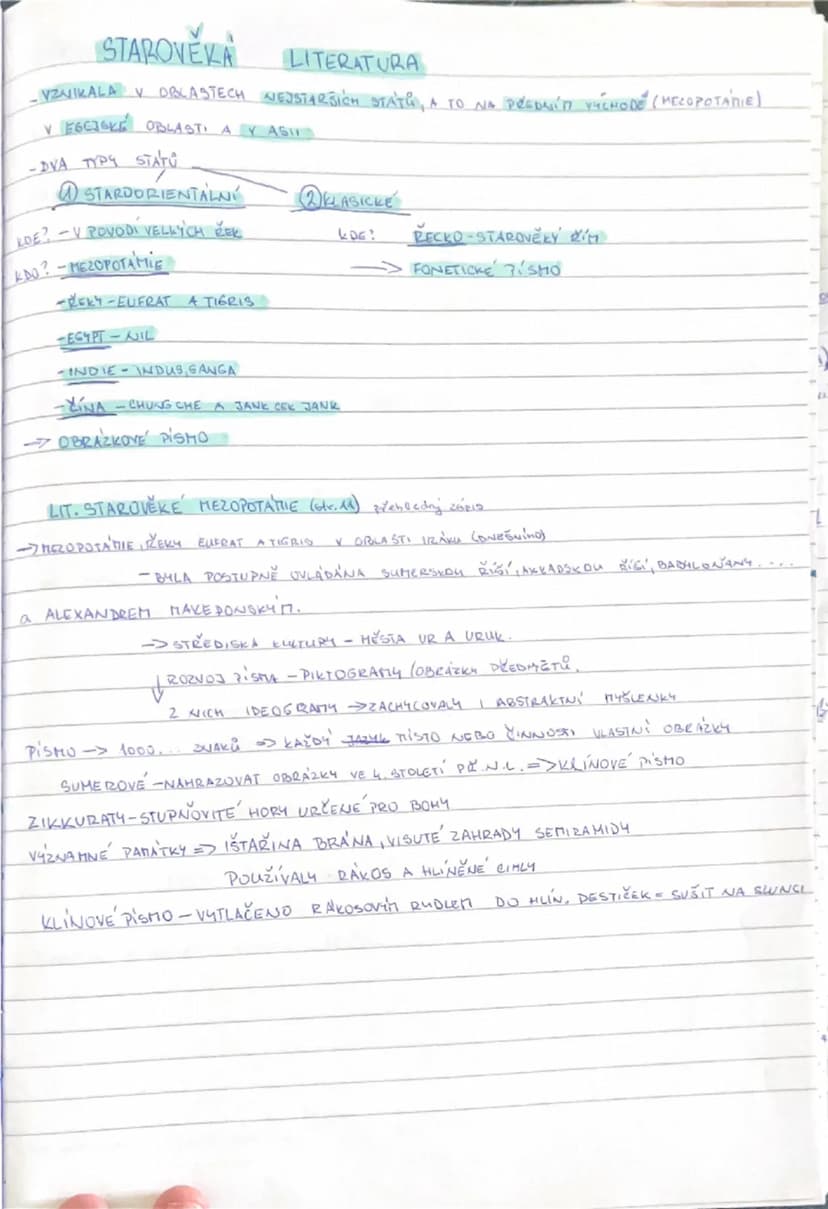 STAROVĚKÁ LITERATURA
- VZNIKALA V OBLASTECH NEJSTARŠÍCH STÁTŮ, A TO NA PŘEDNÍM VÝCHODĚ (MEZOPOTÁMIE)
V EGEJSKÉ OBLASTI A V ASII
- DVA TYPY STÁTŮ
① STAROORIENTÁLNÍ ② KLASICKÉ
KDE? - V POVODÍ VELKÝCH ŘEK KDE? ŘECKO - STAROVĚKÝ ŘÍM
KDO? - MEZOPOTÁMIE → FONETICKÉ PÍSMO
- ŘEKY - EUFRAT A TIGRIS
- EGYPT - NIL
- INDIE - INDUS, GANGA
- ČÍNA - CHUNG CHE A JANK CEK JANK
→ OBRÁZKOVÉ PÍSMO
LIT. STAROVĚKÉ MEZOPOTÁMIE (str. 11) přehledný zápis
→ MEZOPOTÁMIE, ŘEKY EUFRAT A TIGRIS V OBLASTI IRÁKU (DNEŠNÍHO)
- BYLA POSTUPNĚ OVLÁDÁNA SUMERSKOU ŘÍŠÍ, AKKADSKOU ŘÍŠÍ, BABYLOŇANY....
a ALEXANDREM MAKEDONSKÝM.
→ STŘEDISKA KULTURY - MĚSTA UR A URUK.
ROZVOJ PÍSMA - PIKTOGRAMY (OBRÁZKY PŘEDMĚTŮ.
Z NICH IDEOGRAMY → ZACHYCOVALY I ABSTRAKTNÍ MYŠLENKY
PÍSMO → 1000... ZNAKŮ ⇒ KAŽDÝ MÍSTO NEBO ČINNOSTI VLASTNÍ OBRÁZKY
SUMEROVÉ - NAHRAZOVAT OBRÁZKY VE 4. STOLETÍ PŘ. N. L. ⇒ KLÍNOVÉ PÍSMO
ZIKKURATY - STUPŇOVITÉ HORY URČENÉ PRO BOHY
VÝZNAMNÉ PAMÁTKY ⇒ IŠTAŘINA BRÁNA, VISUTÉ ZAHRADY SEMIRAMIDY
POUŽÍVALY RÁKOS A HLÍNĚNÉ CIHLY
KLÍNOVÉ PÍSMO - VYTLAČENO RÁKOSOVÍM RYDLEM DO HLÍN. DESTIČEK = SUŠIT NA SLUNCI